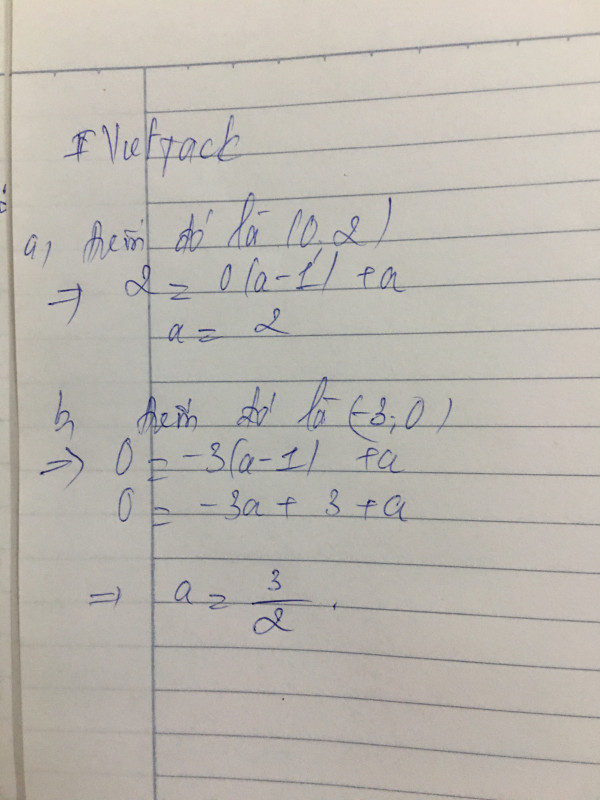 Vietjack
a, điểm đó là (0, 2)
⇒ 2 = 0(a-1) + a
a = 2
b, điểm đó là (-3; 0)
⇒ 0 = -3(a-1) + a
0 = -3a + 3 + a
⇒ a = 3/2.